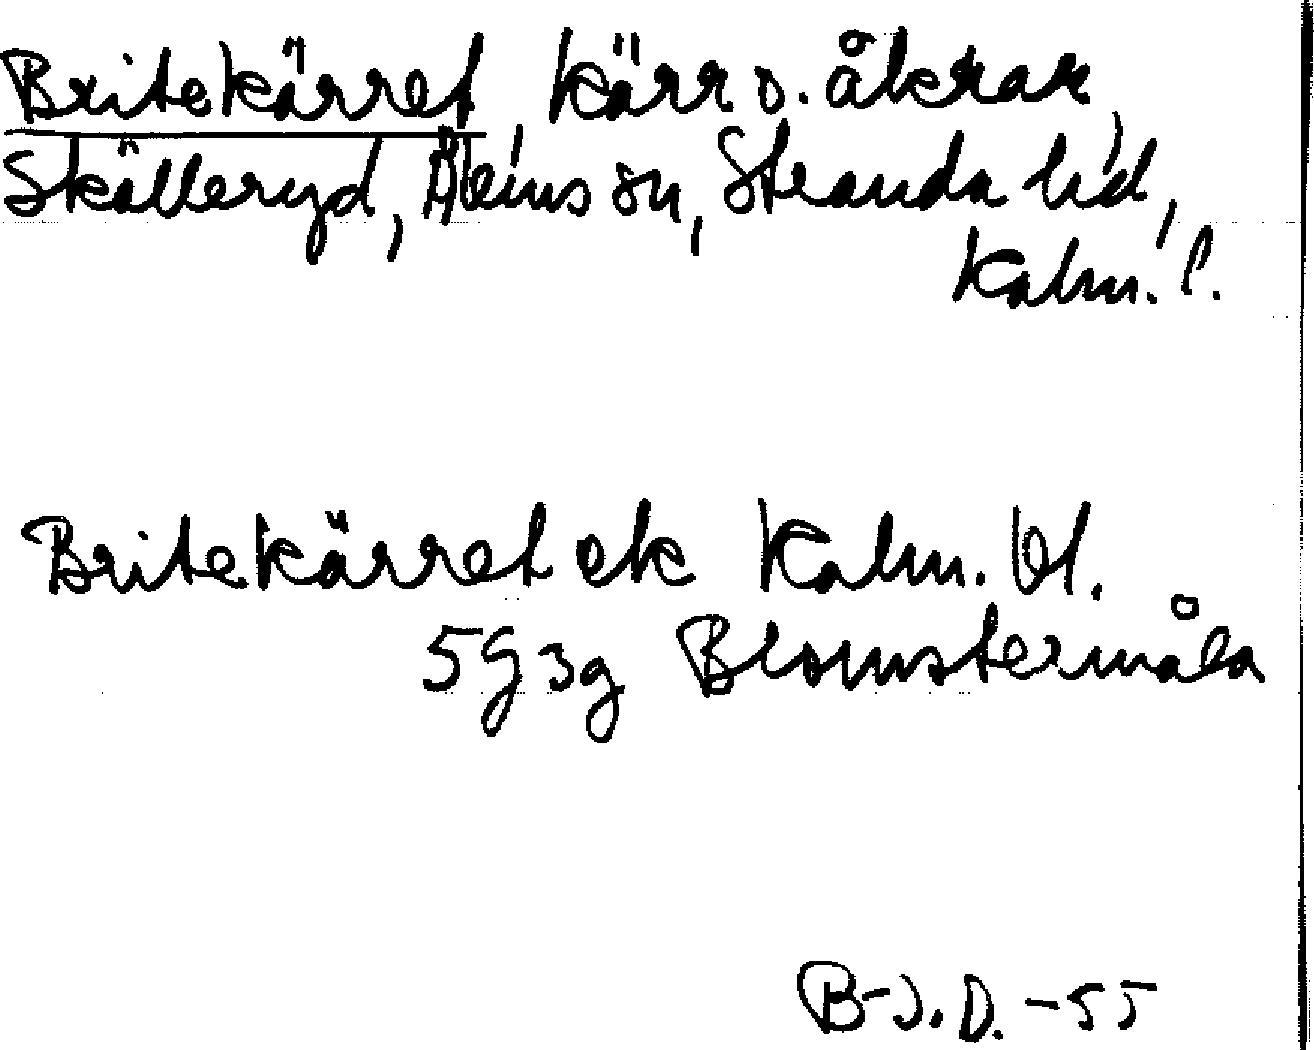 Britekärret, kärr o. åkrar,
Skälleryd, Ålems sn, Stranda hd,
Kalm. l.
Britekärret ek Kalm. bl.
5G3g Blomstermåla
B-J.D. -55